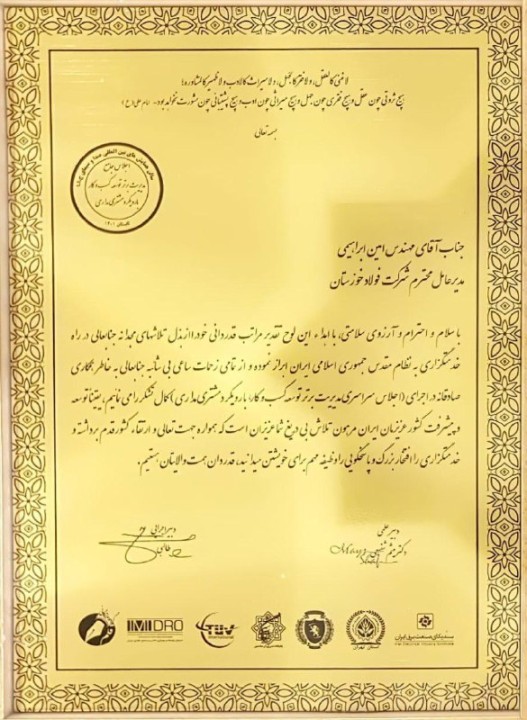 لاغنی کالعقل، ولا فقر کالجهل، ولا میراث کالادب ولا ظهیر کالمشاوره؛
هیچ ثروتی چون عقل و هیچ فقری چون جهل و هیچ میراثی چون ادب و هیچ پشتیبانی چون مشورت نخواهد بود - امام علی (ع)
بسمه تعالی
سالن همایش های بین المللی صدا و سیما
اجلاس جامع
مدیریت برتر توسعه کسب و کار
با رویکرد مشتری مداری
تابستان ۱۴۰۱
جناب آقای مهندس امین ابراهیمی
مدیرعامل محترم شرکت فولاد خوزستان
با سلام و احترام و آرزوی سلامتی، با اهداء این لوح تقدیر مراتب قدردانی خود را از بذل تلاشهای مجدانه جنابعالی در راه
خدمتگزاری به نظام مقدس جمهوری اسلامی ایران ابراز نموده و از تمامی زحمات ساعی بی شائبه جنابعالی به خاطر همکاری
صادقانه در اجرای (اجلاس سراسری مدیریت برتر توسعه کسب و کار با رویکرد مشتری مداری) کمال تشکر را می نمائیم. یقیناً توسعه
و پیشرفت کشور عزیزمان ایران مرهون تلاش بی دریغ شما عزیزان است که همواره جهت تعالی و ارتقاء کشور قدم برداشته و
خدمتگزاری را افتخار بزرگ و پاسخگویی را وظیفه مهم برای خویشتن میدانید، قدردان همت والایتان هستیم.
دبیر علمی
دکتر میثم شفیعی
دبیر اجرایی
IMIDRO
TÜV
International
استان تهران
سندیکای صنعت برق ایران